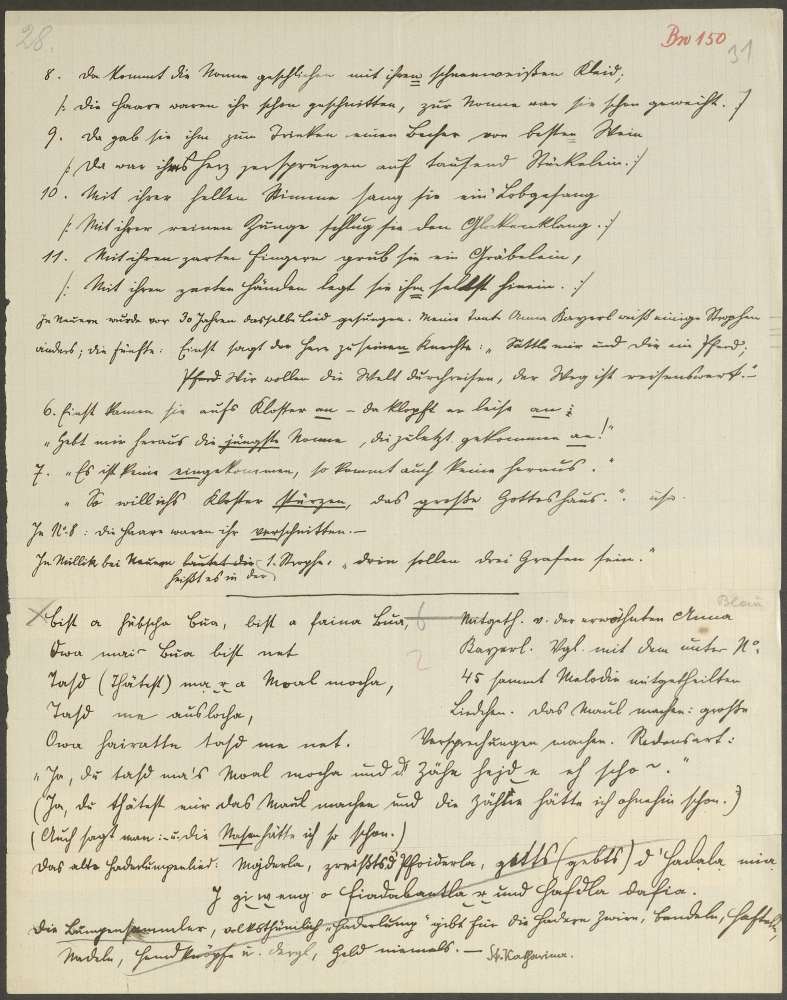 28.
Bw 150
31
8. Da kommt die Nonne geschlichen mit ihren schneeweißen Kleid;
/: Die Haare waren ihr schon geschnitten, zur Nonne war sie schon geweiht. :/
9. Da gab sie ihm zum Trinken einen Becher von besten Wein
/: Da war ihms Herz zersprungen auf tausend Stückelein. :/
10. Mit ihrer hellen Stimme sang sie ein Lobgesang
/: Mit ihrer reinen Zunge schlug sie den Glockenklang. :/
11. Mit ihren zarten Fingern grub sie ein Gräbelein,
/: Mit ihren zarten Händen legt sie ihn selbst hinein. :/
In Neuern wurde vor 30 Jahren dasselbe Lied gesungen. Meine Tante Anna Bayerl weiß einige Strophen
anders; die fünfte: Einst sagt der Herr zu seinen Knechte: „Sattle mir und dir ein Pferd;
Pferd Wir wollen die Welt durchreisen, der Weg ist reisenswert."
6. Einst kamen sie aufs Kloster an – da klopft er leise an:
„Gebt mir heraus die jüngste Nonne, die zuletzt gekommen an!"
7. „Es ist keine eingekommen, so kommt auch keine heraus."
„So will ichs Kloster stürzen, das große Gotteshaus." usw.
In No. 8: Die Haare waren ihr verschnitten. –
In Millik bei Neuern lautet die 1. Strophe, „drin sollen drei Grafen sein."
heißt es in der
Bist a hübscha Bua, bist a faina Bua, 6
Owa mai Bua bist net
Tasd (Thätest) ma r a Maal mocha,
Tasd me auslocha,
Owa hairattn tasd me net.
Blau
Mitgeth. v. der erwähnten Anna
Bayerl. Vgl. mit dem unter No.
45 sammt Melodie mitgetheilten
Liedchen. Das Maul machen: große
Versprechungen machen. Redensart:
„Ja, du tasd ma's Maal mocha und d' Zähn hejd e eh scho~."
(Ja, du thätest mir das Maul machen und die Zähne hätte ich ohnehin schon.)
(Auch sagt man: – u. die Nasen hätte ich so schon.)
Das alte Haderlumpenlied: Majderla, zreißts d' Pfoiderla, getts (gebts) d' Hadala mia
I gi w eng a Fiadabantla r und Hafdla dafia.
Die Lumpensammler, volksthümlich „Haderlump" gibt für die Hadern Zwirn, Bandeln, Hafteln,
Nadeln, Hemdknöpfe u. dergl, Geld niemals. – St. Katharina.